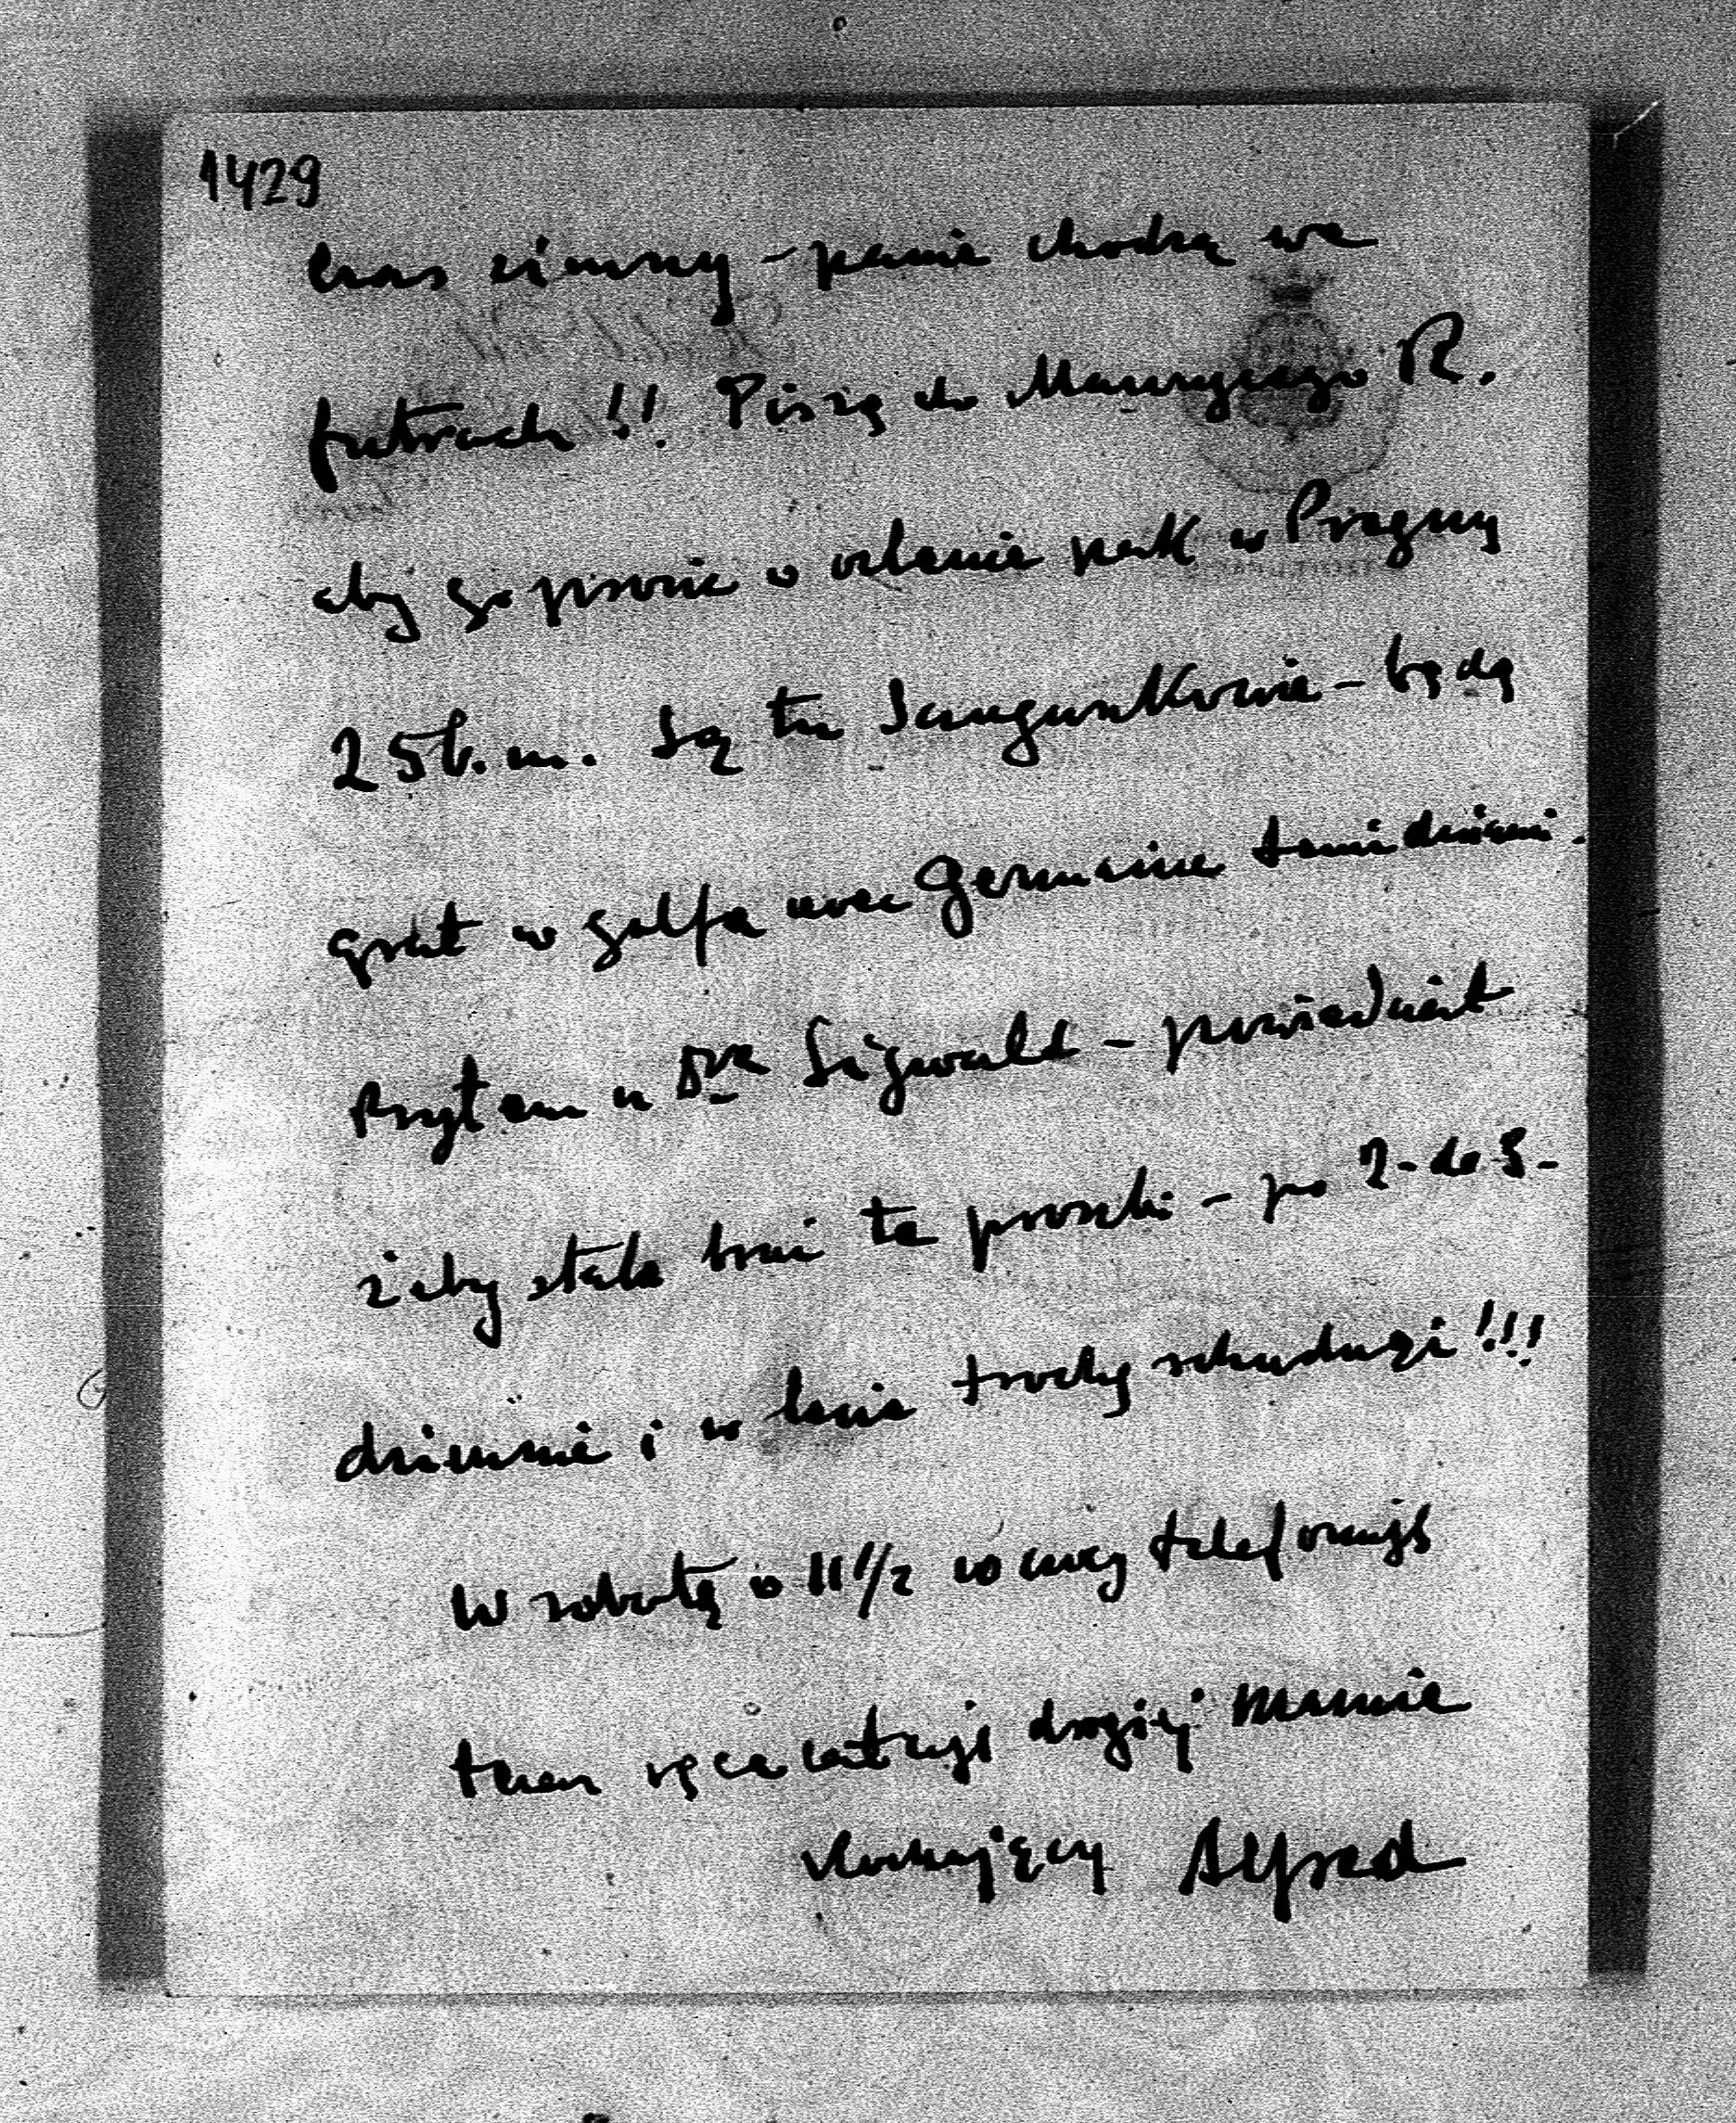 1429
czas zimny – panie chodzą we
futrach!! Piszę do Maurycego R.
aby go prosić o w Pragny
25 b.m. Są tu Sanguszkowie – będą
grał w golfa avec Germaine temi dniami.
Byłem u Dra Sigwald – powiedział
żeby stale brać te proszki – po 2 - do 3 -
dziennie i w lecie trochę schudnąć!!!
W sobotę o 11 1/2 w nocy telefonuję
teraz ręce całuję drogiej Mamie
kochający Alfred